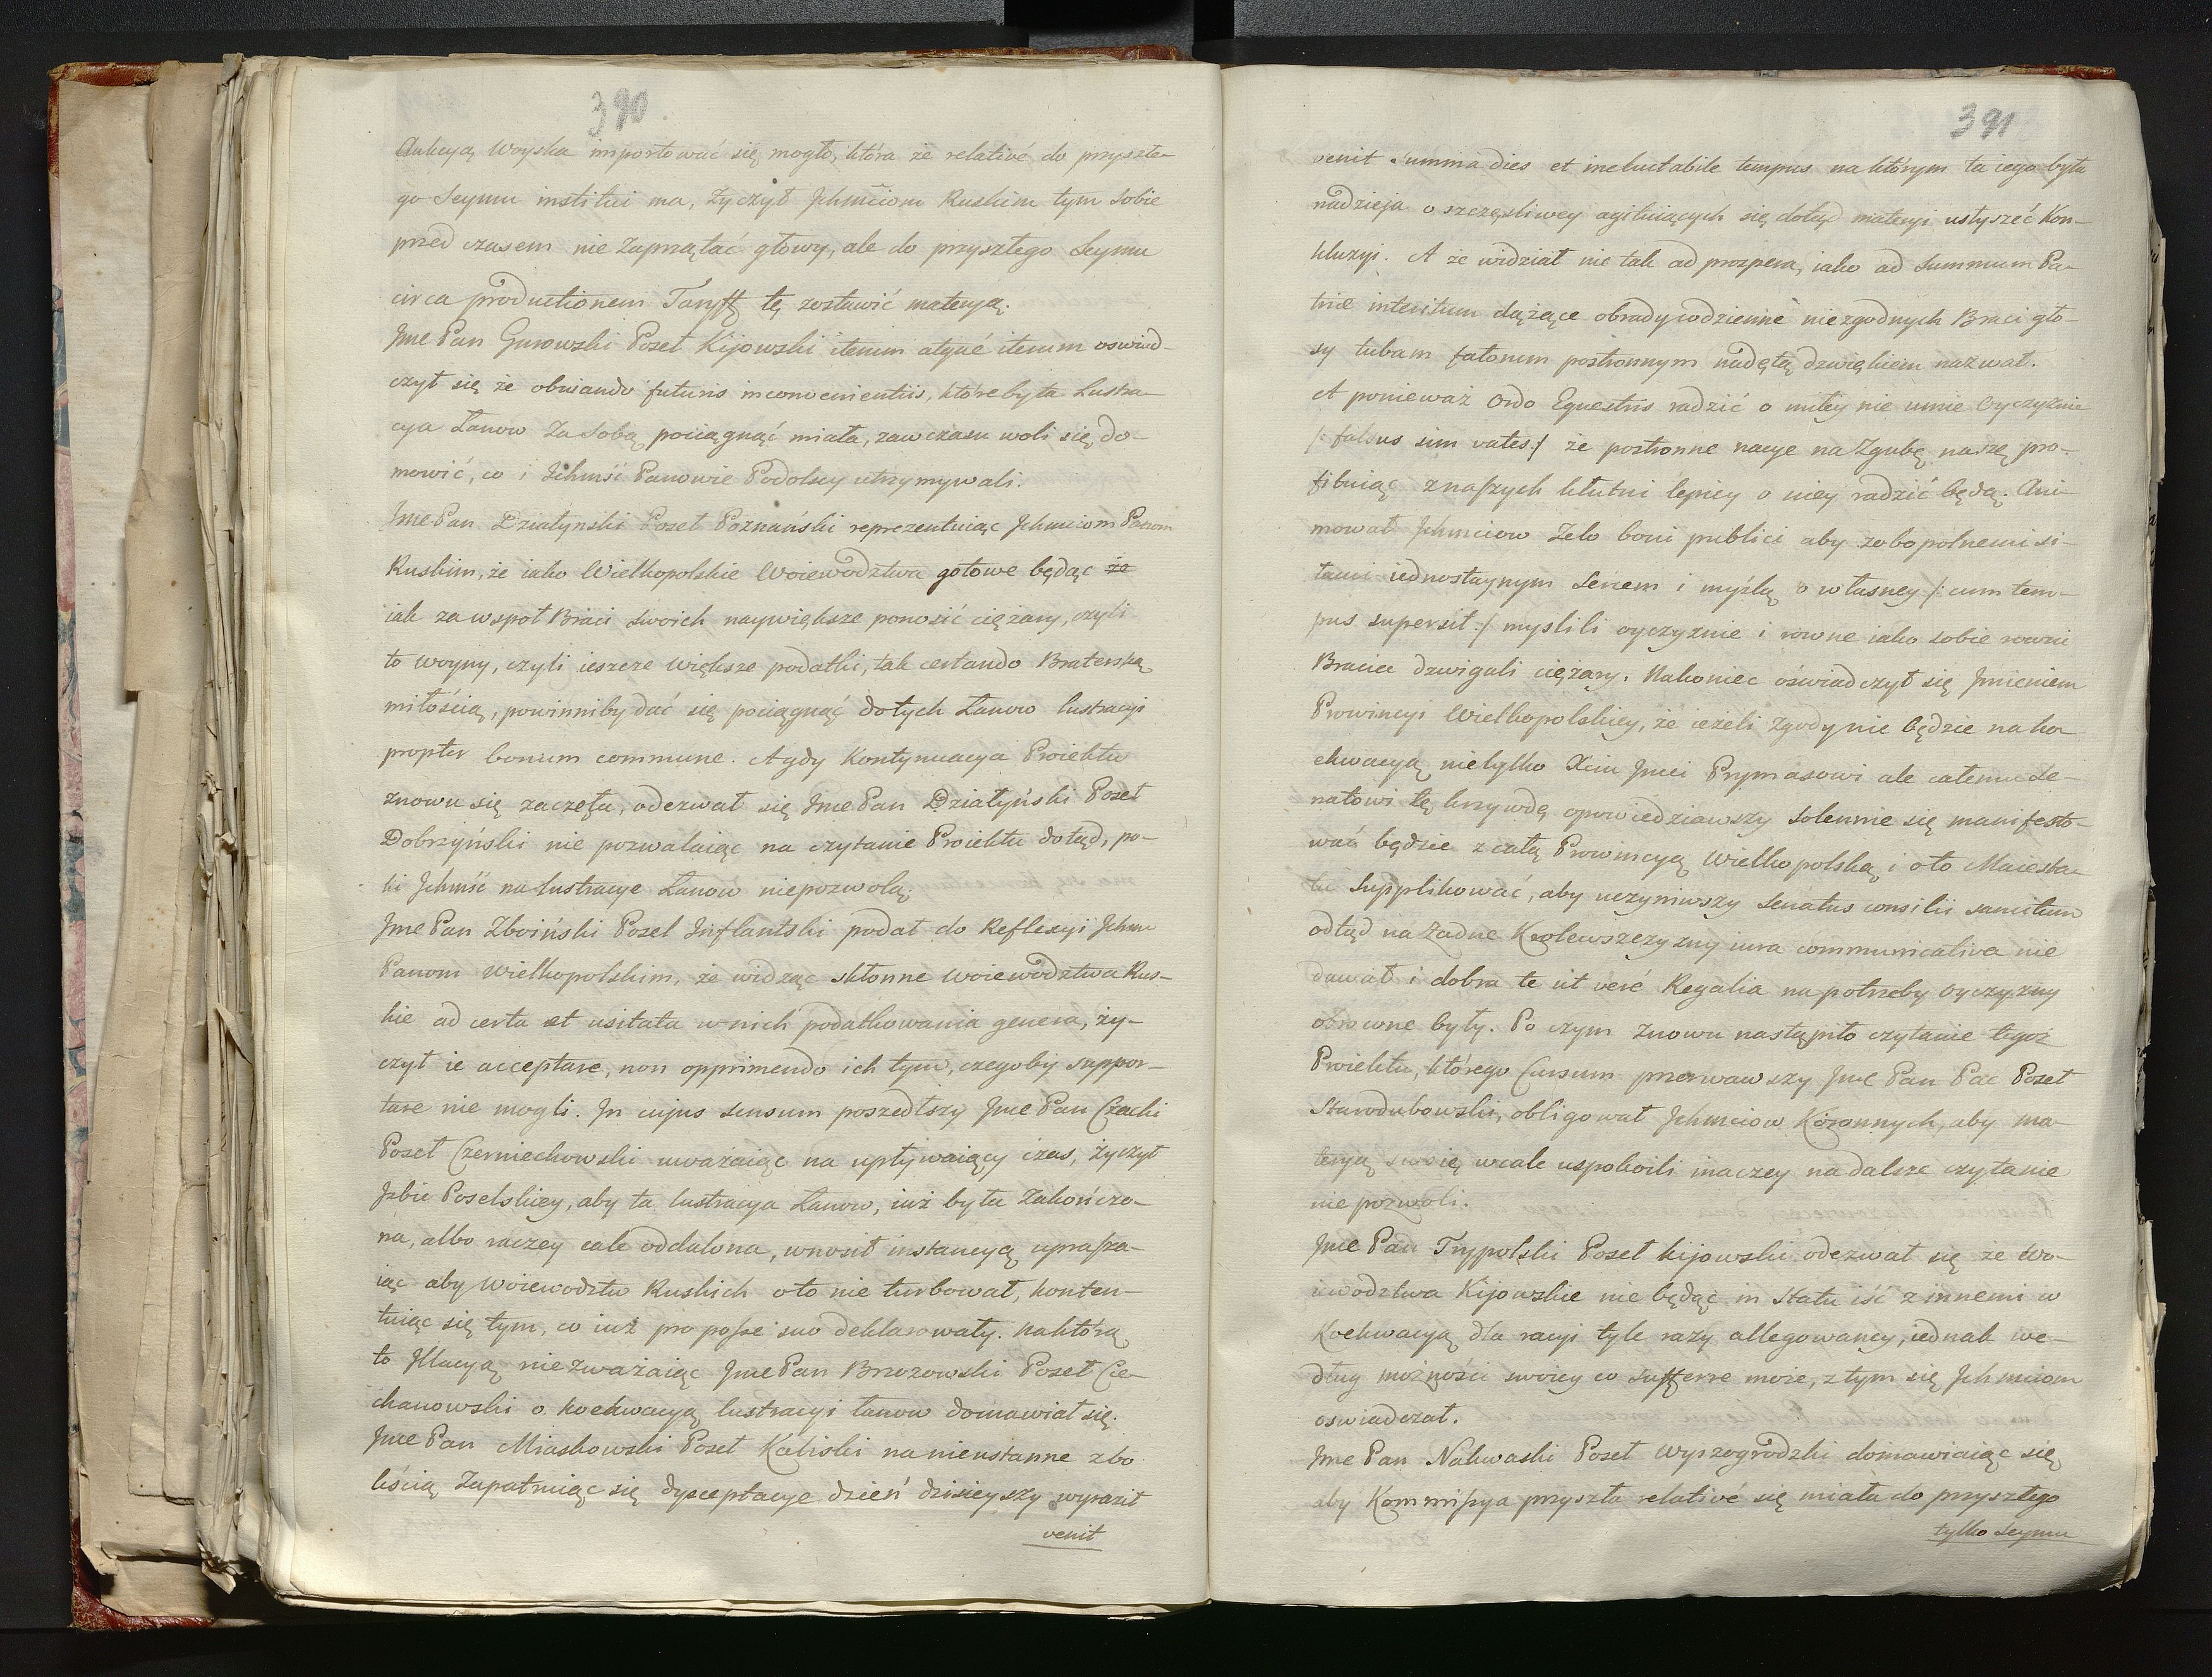 390
Aukcyą Woyska importować się mogło, która że relativé do przyszłe-
go Seymu institui ma, życzył Jchmciom Ruskim tym sobie
przed czasem nie zaprzątać głowy, ale do przyszłego Seymu
circa productionem Taryff tę zostawić materyą.
Jme Pan Gurowski Poseł Kijowski iterum atqué iterum oswiad-
czył się że obviando futuris inconvenientiis, któreby ta Lustra-
cya Łanow za sobą pociągnąć miała, zawczasu woli się do-
mowić, co i Jchmść Panowie Podolscy utrzymywali.
Jme Pan Działynski Poseł Poznański reprezentuiąc Jchmciom Panom
Ruskim, że iako Wielkopolskie Woiewodztwa gotowe będąc że
iak za wspoł Braci swoich naywiększe ponosić ciężary, czyli
to woyny, czyli ieszcze większe podatki, tak certando Braterską
miłością, powinniby dać się pociągnąć do tych Łanow lustracyi
propter bonum commune. A gdy kontynuacya Proiektu
znowu się zaczęła, odezwał się Jme Pan Działyński Poseł
Dobrzyński nie pozwalaiąc na czytanie Proiektu dotąd, po-
ki Jchmść na lustracye Łanow niepozwolą.
Jme Pan Zboiński Poseł Inflantski podał do Reflexyi Jchm
Panom Wielkopolskim, że widząc skłonne Woiewodztwa Rus-
kie ad certa et usitata w nich podatkowania genera, ży-
czył ie acceptare, non opprimendo ich tym, czegoby suppor-
tare nie mogli. In cujus sensum poszedłszy Jme Pan Czacki
Poseł Czerniechowski uważaiąc na upływaiący czas, życzył
Jzbie Poselskiey, aby ta lustracya Łanow, iuż była zakończo-
na, albo raczey cale oddalona, wnosił instancyą uprasza-
iąc aby Woiewodztw Ruskich o to nie turbował, konten-
tuiąc się tym, co iuż pro posse suo deklarowały. na którą
to Jllacyą nie zważaiąc Jme Pan Brzozowski Poseł Cie-
chanowski o koekwacyą lustracyi łanow domawiał się.
Jme Pan Miaskowski Poseł Kaliski na nieustanne z bo
leścią zapatruiąc się dysceptacye dzień dzisieyszy wyraził
venit
391
venit summa dies et ineluctabile tempus na którym ta iego była
nadzieja o szczęsliwey agituiących się dotąd materyi usłyszeć kon-
kluzyi. A że widział nie tak ad prospera, iako ad summum Pa-
triæ interitum dążące obrady codzienne niezgodnych Braci gło-
sy tubam fatorum postronnym nadętą dzwiękiem nazwał.
A ponieważ Ordo Equestris radzić o miłey nie umie Oyczyznie
/: falsus sim vates:/ że postronne nacye na zgubę naszę pro-
fituiąc z naszych kłutni lepiey o niey radzić będą. Ani-
mował Jchmciow zelo boni publici aby zobopolnemi si-
łami iednostaynym sercem i myślą o własney /: cum tem-
pus supersit:/ myslili oyczyznie i rowne iako sobie rowni
Bracia dzwigali ciężary. Nakoniec oświadczył się Jmieniem
Prowincyi Wielkopolskiey, że ieżeli zgody nie będzie na ko
ekwacyą nietylko Xciu Jmci Prymasowi ale całemu Se-
natowi tę krzywdę opowiedziawszy solennie się manifesto-
wać będzie z całą Prowincyą Wielkopolską i o to Maiesta-
tu Supplikować, aby uczyniwszy Senatus consilii sancitum
odtąd na żadne Krolewszczyzny iura communicativa nie
dawał i dobra te ut veré Regalia na potrzeby Oyczyzny
obrocone były. Po czym znowu nastąpiło czytanie tegoż
Proiektu, którego Cursum przerwawszy Jme Pan Pac Poseł
Starodubowski, obligował Jchmciow Koronnych, aby ma-
teryą swoię wcale uspokoili inaczey na dalsze czytanie
nie pozwoli.
Jme Pan Trypolski Poseł kijowski odezwał się że Wo-
iewodztwa Kijowskie nie będąc in statu iść z innemi w
Koekwacyą dla racyi tyle razy allegowaney, iednak we-
dług możności swoiey co sufferre może, z tym się Jchmciom
oswiadczał.
Jme Pan Nakwaski Poseł Wyszogrodzki domawiaiąc się
aby Kommissya przyszła relativé się miała do przyszłego
tylko Seymu